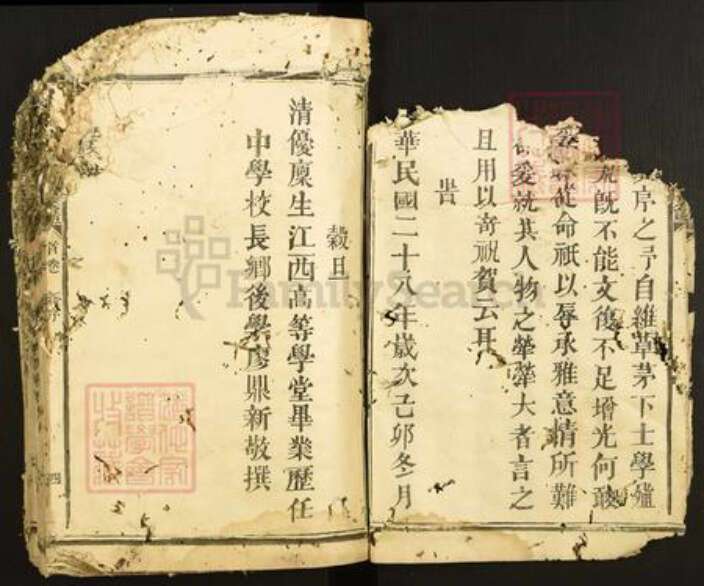 序之予自維草茅下士學殖
既不能文復不足增光何敢
從命祇以辱承雅意情所難
爰就其人物之犖犖大者言之
且用以寄祝賀云耳
旹
華民國二十八年歲次己卯冬月
穀旦
清優廩生江西高等學堂畢業歷任
中學校長鄉後學廖鼎新敬撰
首卷
四
FamilySearch